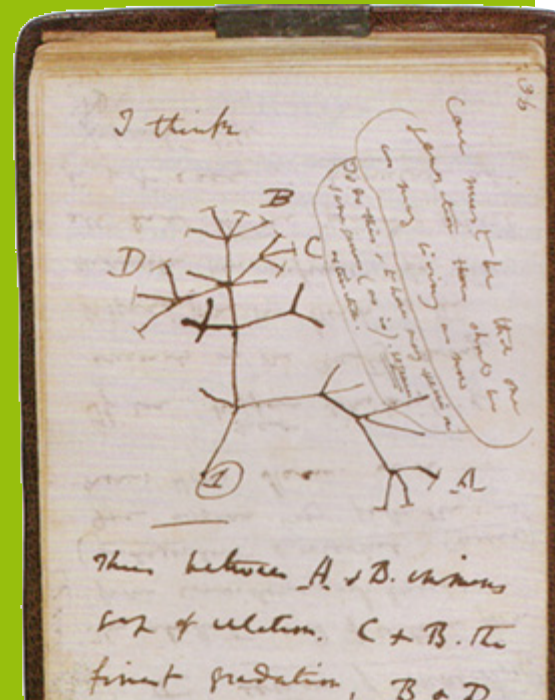 I think
B
D
C
A
1
36
Case must be that one
generation then should be
as many living as now
To do this & to have many species in
same genus (as is), requires
extinction.
Thus between A & B. immens
gap of relation. C & B. the
finest gradation, B & D